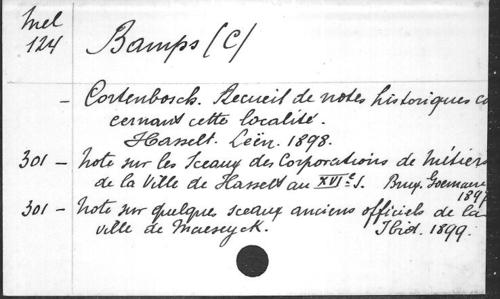 Mel
124
Bamps (C)
- Cortenbosch. Recueil de notes historiques co
cernant cette localité.
Hasselt. Leën. 1898.
301 - Note sur les Sceaux des Corporations de Métiers
de la Ville de Hasselt au XVIe S. Brux. Goemaere
1897
301 - Note sur quelques sceaux anciens officiels de la
ville de Maeseyck. Ibid. 1899.